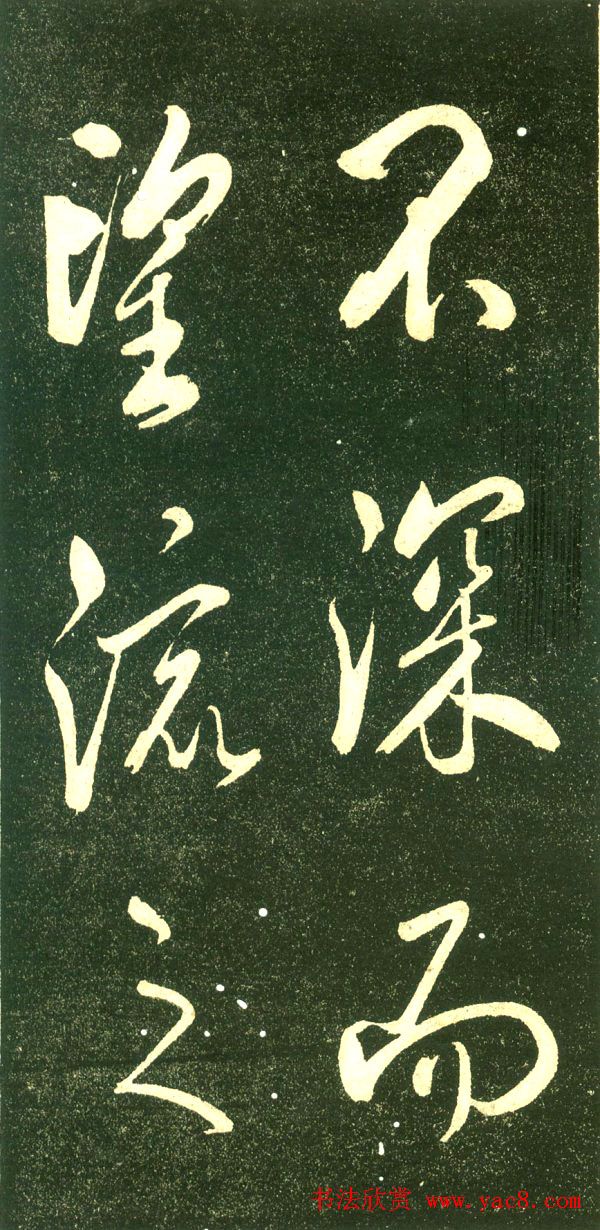 不深而
望流之
书法欣赏 www.yac8.com